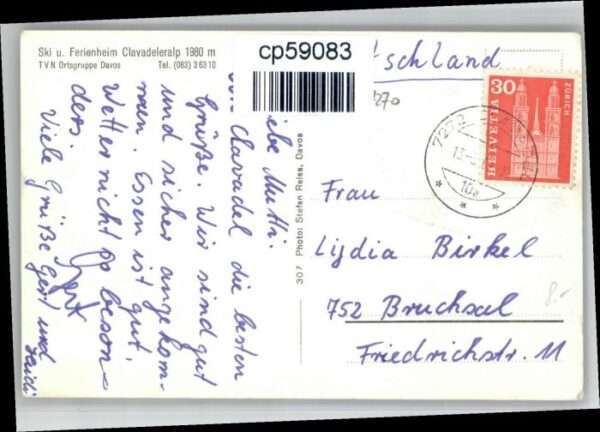 Ski u. Ferienheim Clavadeleralp 1980 m
TVN Ortsgruppe Davos Tel. (083) 3 63 10
cp59083
schland
270
30
ZÜRICH
HELVETIA
7272
10a
Mutti.
Clavadel die besten
Grüße. Wir sind gut
und sicher angekom-
men. Essen ist gut.
Wetter nicht so beson-
ders.
Viele Grüße Gert und
307 Photo: Stefan Reiss, Davos
Frau
Lydia Birkel
752 Bruchsal
Friedrichstr. 11
8.-